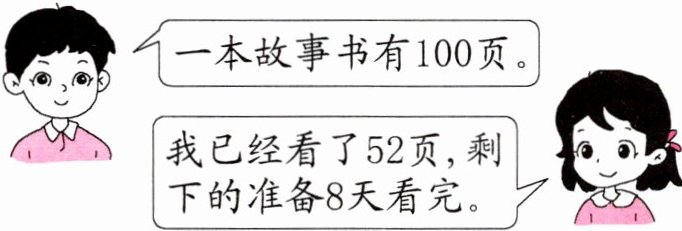 一本故事书有100页。
我已经看了52页,剩
下的准备8天看完。